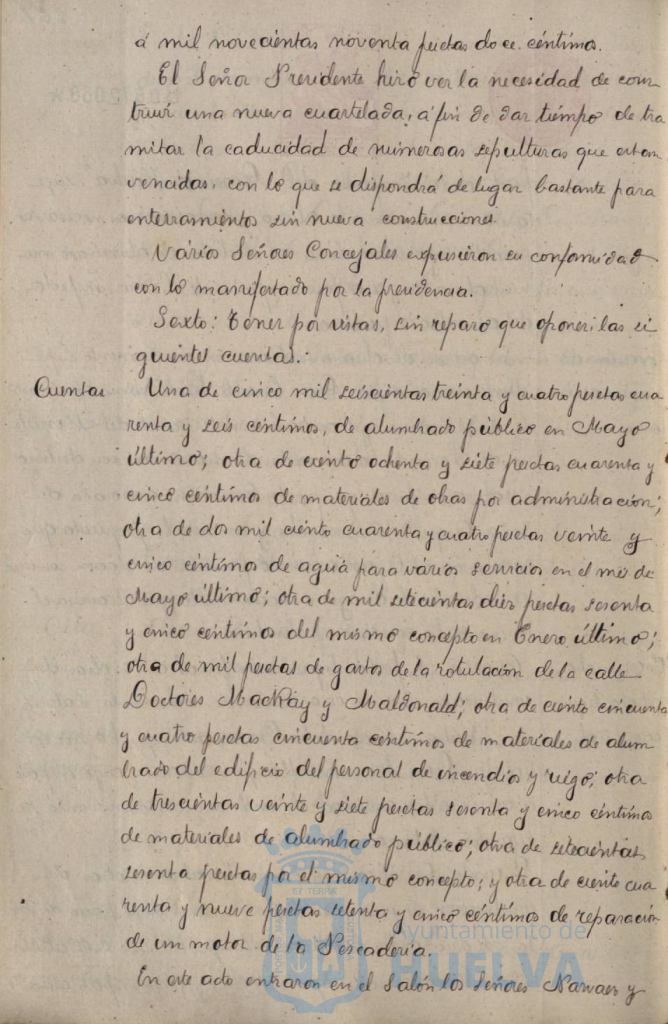 á mil novecientas noventa pesetas doce céntimos.
El Señor Presidente hizo ver la necesidad de cons
truir una nueva cuartelada, á fin de dar tiempo de tra
mitar la caducidad de numerosas sepulturas que estan
vencidas, con lo que se dispondrá de lugar bastante para
enterramientos sin nueva construcciones.
Varios Señores Concejales expusieron su conformidad
con lo manifestado por la presidencia.
Sexto: Tener por vistas, sin reparo que oponer, las si
guientes cuentas.
Cuentas
Una de cinco mil seiscientas treinta y cuatro pesetas cua
renta y seis céntimos, de alumbrado público en Mayo
último; otra de ciento ochenta y siete pesetas cuarenta y
cinco céntimos de materiales de obras por administración;
otra de dos mil ciento cuarenta y cuatro pesetas veinte y
cinco céntimos de agua para varios servicios en el mes de
Mayo último; otra de mil setecientas diez pesetas sesenta
y cinco céntimos del mismo concepto en Enero último;
otra de mil pesetas de gastos de la rotulación de la calle
Doctores Mackay y Maldonald; otra de ciento cincuenta
y cuatro pesetas cincuenta céntimos de materiales de alum
brado del edificio del personal de incendios y riego; otra
de trescientas veinte y siete pesetas sesenta y cinco céntimos
de materiales de alumbrado público; otra de setecientas
sesenta pesetas por el mismo concepto; y otra de ciento cua
renta y nueve pesetas setenta y cinco céntimos de reparación
de un motor de la Pescadería.
En este acto entraron en el Salón los Señores Narvaez y
ET TERRA
Ayuntamiento de
HUELVA